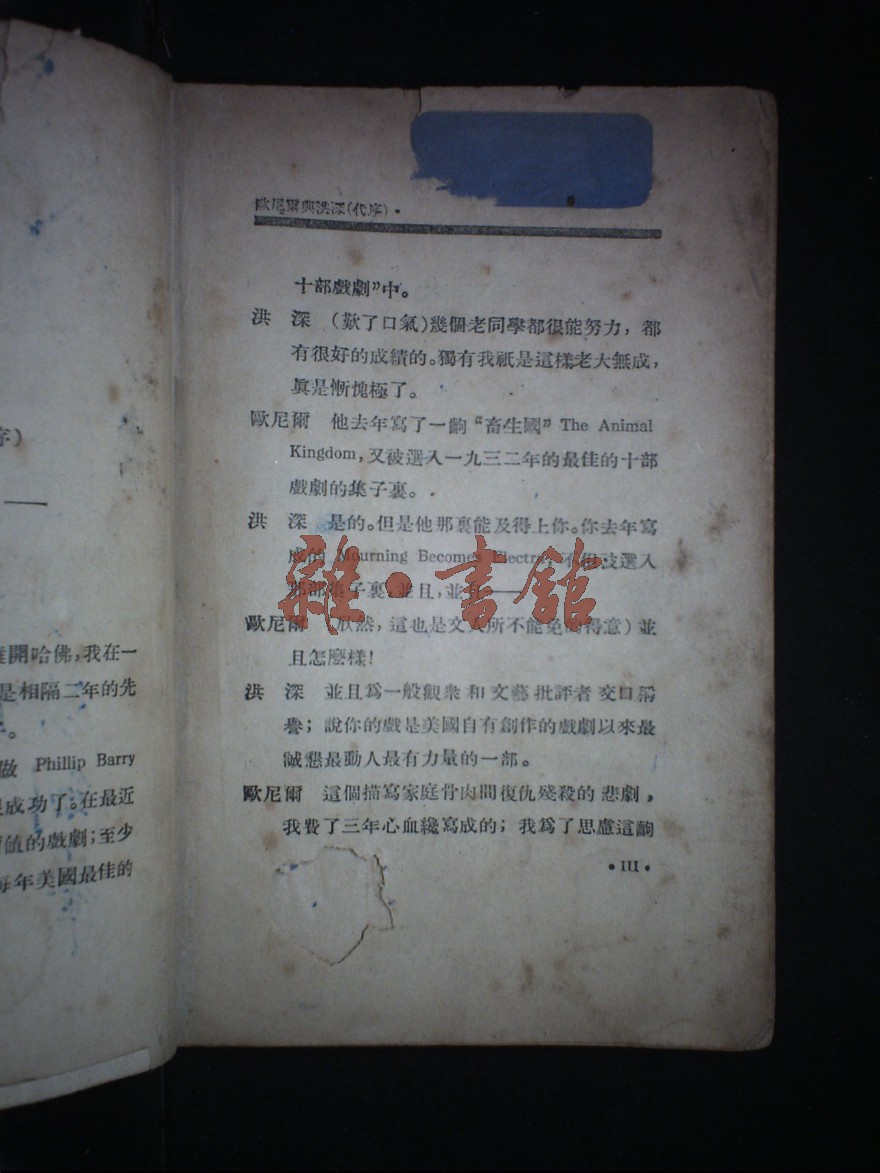 序)
開哈佛,我在一
是相隔二年的先
做 Phillip Barry
成功了。在最近
值的戲劇;至少
每年美國最佳的
歐尼爾與洪深(代序)·
十部戲劇”中。
洪 深 (歎了口氣)幾個老同學都很能努力,都
有很好的成績的。獨有我祇是這樣老大無成,
眞是慚愧極了。
歐尼爾 他去年寫了一齣“畜生國” The Animal
Kingdom,又被選入一九三二年的最佳的十部
戲劇的集子裏。
洪 深 是的。但是他那裏能及得上你。你去年寫
成的 Mourning Becomes Electra,不但被選入
那部集子裏,並且,並且——
歐尼爾 (欣然,這也是文人所不能免的得意)並
且怎麼樣!
洪 深 並且爲一般觀衆和文藝批評者交口稱
譽;說你的戲是美國自有創作的戲劇以來最
誠懇最動人最有力量的一部。
歐尼爾 這個描寫家庭骨肉間復仇殘殺的悲劇,
我費了三年心血纔寫成的;我爲了思慮這齣
·III·
雜·書館